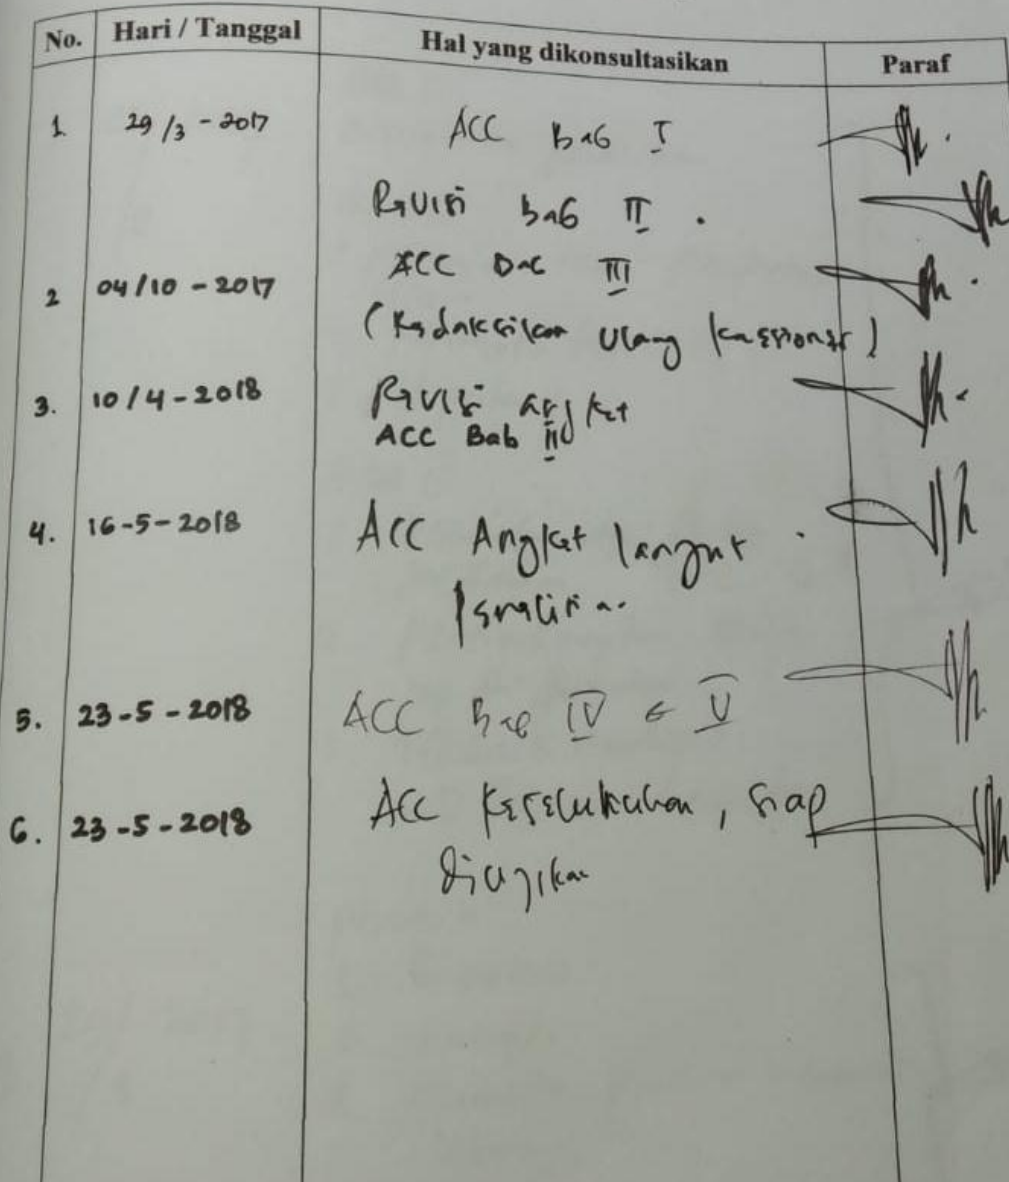 No. Hari / Tanggal Hal yang dikonsultasikan Paraf
1. 29/3 - 2017 ACC Bab I
Revisi bab II .
ACC Bab III
2 04/10 - 2017
(Redaksikan Ulang kuesioner)
3. 10/4-2018 Revisi angket
ACC Bab II
4. 16-5-2018 ACC Angket lanjut
5. 23-5-2018 ACC Bab IV & V
6. 23-5-2018 ACC Keseluruhan, siap
diujikan